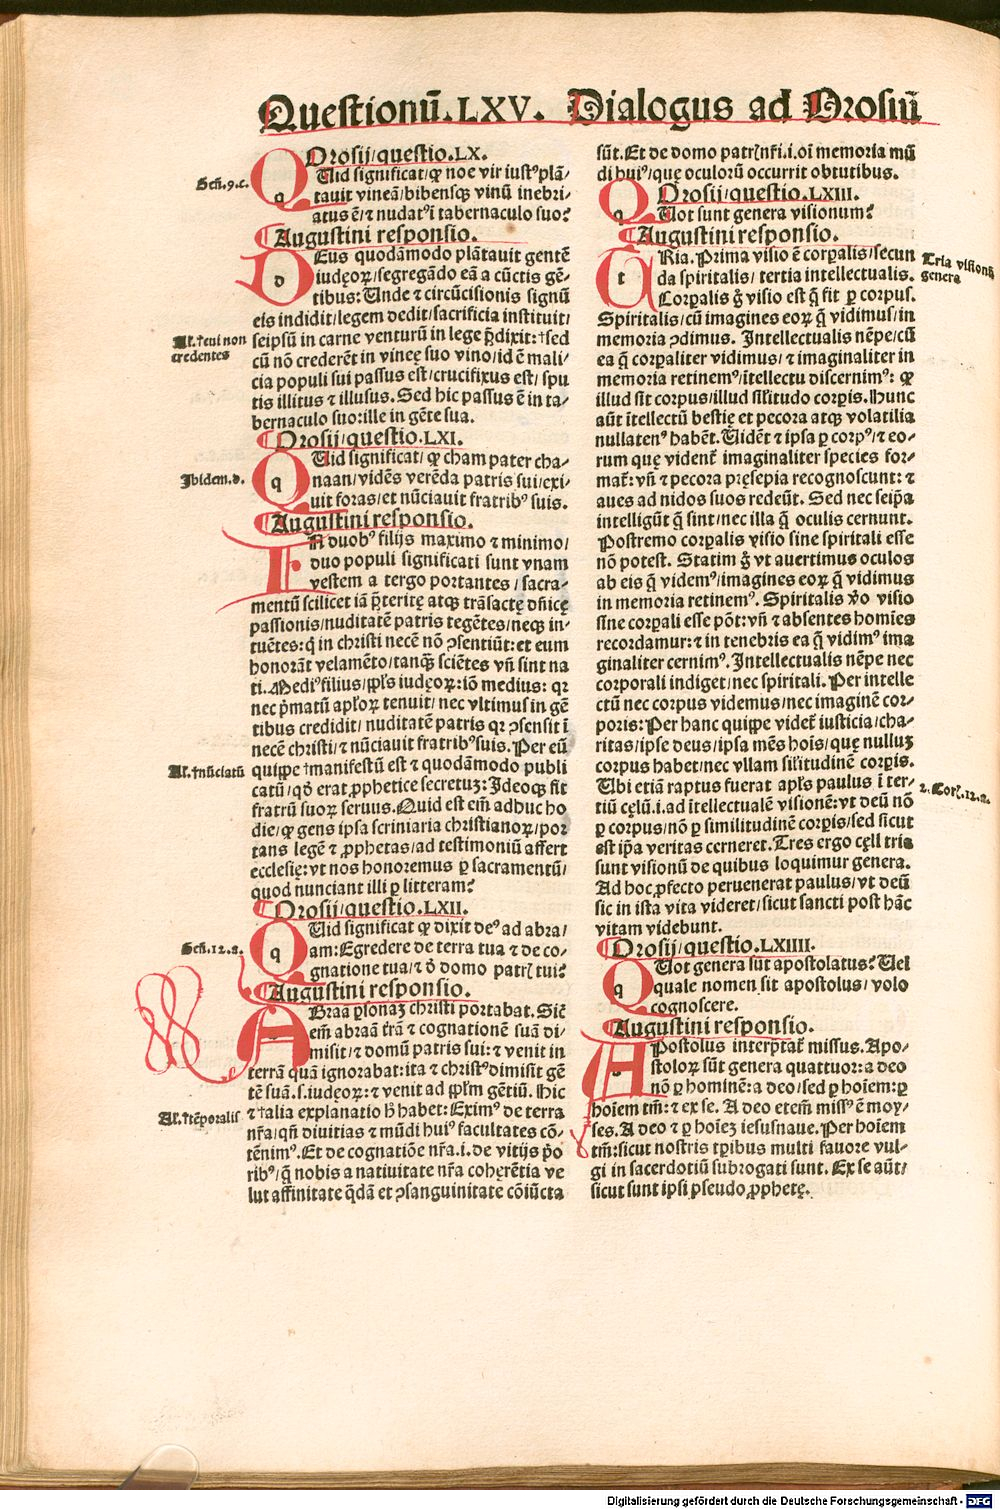 Questionū. LXV. Dialogus ad Orosiū
Orosij/questio.LX.
Gen̄.9.c.
QUid significat/ꝙ noe vir iustꝰ plā⸗
tauit vineā/bibensqꝫ vinū inebri⸗
atus ē/⁊ nudatꝰ ī tabernaculo suo?
Augustini responsio.
DEus quodāmodo plātauit gentē
iudęoꝝ/segregādo eā a cūctis gē⸗
tibus: Unde ⁊ circūcisionis signū
eis indidit/legem dedit/sacrificia instituit/
Al. †cui non
credentes
seipsū in carne venturū in lege p̄dixit: †sed
cū nō crederēt in vineę suo vino/id ē mali⸗
cia populi sui passus est/crucifixus est/spu
tis illitus ⁊ illusus. Sed hic passus ē in ta⸗
bernaculo suo: ille in gēte sua.
Orosij/questio.LXI.
Ibidem.d.
QUid significat/ ꝙ cham pater cha⸗
naan/vidēs verēda patris sui/exi⸗
uit foras/et nūciauit fratribꝰ suis.
Augustini responsio.
IN duobꝰ filijs maximo ⁊ minimo/
duo populi significati sunt vnam
vestem a tergo portantes/sacra⸗
mentū scilicet iā p̄teritę atqꝫ trāsactę dn̄icę
passionis/nuditatē patris tegētes/neqꝫ in⸗
tuētes: q̓ in christi necē nō ꝯsentiūt: et eum
honorāt velamēto/tanqꝫ sciētes vn̄ sint na
ti. Mediꝰ filius/ppl̓s iudęoꝝ: iō medius: qꝛ
nec p̓matū apl̓oꝝ tenuit/nec vltimus in gē
tibus credidit/nuditatē patris qꝛ ꝯsensit ī
necē christi/⁊ nūciauit fratribꝰ suis. Per eū
Al. †nūciatū
quippe †manifestū est ⁊ quodāmodo publi
catū/qd̓ erat ꝓphetice secretuꝫ: Ideoqꝫ fit
fratrū suoꝝ seruus. Quid est em̄ adhuc ho
die/ꝙ gens ipsa scriniaria christianoꝝ/por
tans legē ⁊ ꝓphetas/ad testimoniū assert
ecclesię: vt nos honoremus ꝑ sacramentū/
quod nunciant illi ꝑ litteram?
Orosij/questio.LXII.
Gen̄.12.a.
QUid significat ꝙ dixit deꝰ ad abra/
am: Egredere de terra tua ⁊ de co⸗
gnatione tua/⁊ d̓ domo patrꝭ tui?
Augustini responsio.
ABraā ꝑsonaꝫ christi portabat. Sic̄
em̄ abraā frā ⁊ cognationē suā di⸗
misit/⁊ domū patris sui: ⁊ venit in
terrā quā ignorabat: ita ⁊ christꝰ dimisit gē
tē suā.s.iudęoꝝ: ⁊ venit ad ppl̓m gētiū. Hic
Al. †tēporalis
⁊ †alia explanatio h̓ habet: Eximꝰ de terra
nr̄a/qn̄ diuitias ⁊ mūdi huiꝰ facultates cō⸗
tēnimꝰ. Et de cognatiōe nr̄a.i.de vitijs p̓o
ribꝰ/q̄ nobis a natiuitate nr̄a cohęrētia ve
lut affinitate q̄dā et ꝯsanguinitate cōiūcta
sūt. Et de domo patrꝭ nr̄i.i.oī memoria mū
di huiꝰ/quę oculorū occurrit obtutibus.
Orosij/questio.LXIII.
QUot sunt genera visionum?
Augustini responsio.
Tria visionū
genera
TRia. Prima visio ē corꝑalis/secun
da spiritalis/tertia intellectualis.
Corꝑalis g̓ visio est q̄ fit ꝑ corpus.
Spiritalis/cū imagines eoꝝ q̄ vidimus/in
memoria ꝯdimus. Intellectualis nēpe/cū
ea q̄ corꝑaliter vidimus/⁊ imaginaliter in
memoria retinemꝰ/ītellectu discernimꝰ: ꝙ
illud sit corpus/illud sil̓itudo corꝑis. Hunc
aūt ītellectū bestię et pecora atqꝫ volatilia
nullatenꝰ habēt. Uidēt ⁊ ipsa ꝑ corpꝰ/⁊ eo⸗
rum quę vident̄ imaginaliter species for⸗
mat̄: vn̄ ⁊ pecora pręsepia recognoscunt: ⁊
aues ad nidos suos redeūt. Sed nec seip̄a
intelligūt q̄ sint/nec illa q̄ oculis cernunt.
Postremo corꝑalis visio sine spiritali esse
nō potest. Statim g̓ vt auertimus oculos
ab eis q̄ videmꝰ/imagines eoꝝ q̄ vidimus
in memoria retinemꝰ. Spiritalis v̓o visio
sine corꝑali esse pōt: vn̄ ⁊ absentes homīes
recordamur: ⁊ in tenebris ea q̄ vidimꝰ ima
ginaliter cernimꝰ. Intellectualis nēpe nec
corporali indiget/nec spiritali. Per intelle
ctū nec corpus videmus/nec imaginē cor⸗
poris: Per hanc quippe videt̄ iusticia/cha⸗
ritas/ipse deus/ipsa mēs hoīs/quę nulluꝫ
corpus habet/nec vllam sil̓itudinē corꝑis.
2.Corꝭ.12.a.
Ubi etiā raptus fuerat apl̓s paulus ī ter⸗
tiū cęlū.i.ad ītellectualē visionē: vt deū nō
ꝑ corpus/nō ꝑ similitudinē corꝑis/sed sicut
est ip̄a veritas cerneret. Tres ergo cęli tria
sunt visionū de quibus loquimur genera.
Ad hoc ꝓfecto peruenerat paulus/vt deū
sic in ista vita videret/sicut sancti post hāc
vitam videbunt.
Orosij/questio.LXIIII.
QUot genera sūt apostolatus? Uel
quale nomen sit apostolus/volo
cognoscere.
Augustini responsio.
APostolus interp̄tat̄ missus. Apo⸗
stoloꝝ sūt genera quattuor: a deo
nō ꝑ hominē: a deo/sed ꝑ hoīem: ꝑ
hoīem tm̄: ⁊ ex se. A deo etem̄ missꝰ ē moy⸗
ses. A deo ⁊ ꝑ hoīeꝫ iesus naue. Per hoīem
tm̄: sicut nostris tp̄ibus multi fauore vul⸗
gi in sacerdotiū subrogati sunt. Ex se aūt/
sicut sunt ipsi pseudo ꝓphetę.
Digitalisierung gefördert durch die Deutsche Forschungsgemeinschaft - DFG